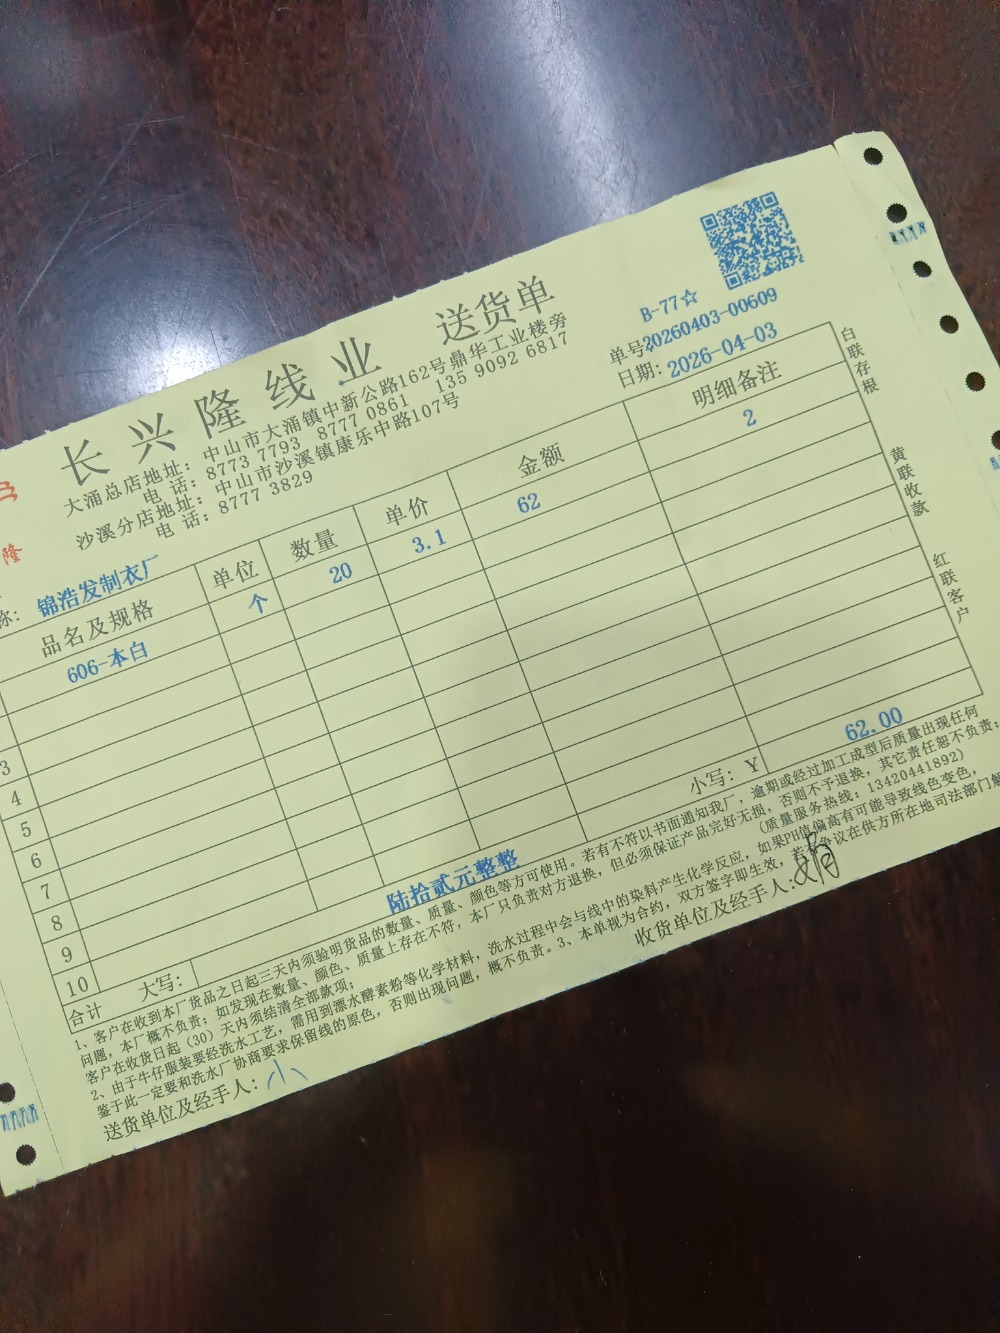 长兴隆线业 送货单
B-77☆
大涌总店地址：中山市大涌镇中新公路162号鼎华工业楼旁
电 话：8773 7793 8777 0861 135 9092 6817
沙溪分店地址：中山市沙溪镇康乐中路107号
电 话：8777 3829
单号20260403-00609
日期：2026-04-03
隆
称：锦浩发制衣厂
品名及规格 单位 数量 单价 金额 明细备注
606-本白 个 20 3.1 62 2
3
4
5
6
7
8
9
10
合计 大写： 陆拾贰元整整 小写：Y 62.00
1、客户在收到本厂货品之日起三天内须验明货品的数量、质量、颜色等方可使用。若有不符以书面通知我厂，逾期或经过加工成型后质量出现任何
问题，本厂概不负责；如发现在数量、颜色、质量上存在不符，本厂只负责对方退换，但必须保证产品完好无损，否则不予退换，其它责任恕不负责；
客户在收货日起（30）天内须结清全部款项； （质量服务热线：13420441892）
2、由于牛仔服装要经洗水工艺，需用到漂水酵素粉等化学材料，洗水过程中会与线中的染料产生化学反应，如果PH值偏高有可能导致线色变色，
鉴于此一定要和洗水厂协商要求保留线的原色，否则出现问题，概不负责。3、本单视为合约，双方签字即生效，若有争议在供方所在地司法部门解
送货单位及经手人：小 收货单位及经手人：
白联存根
黄联收款
红联客户